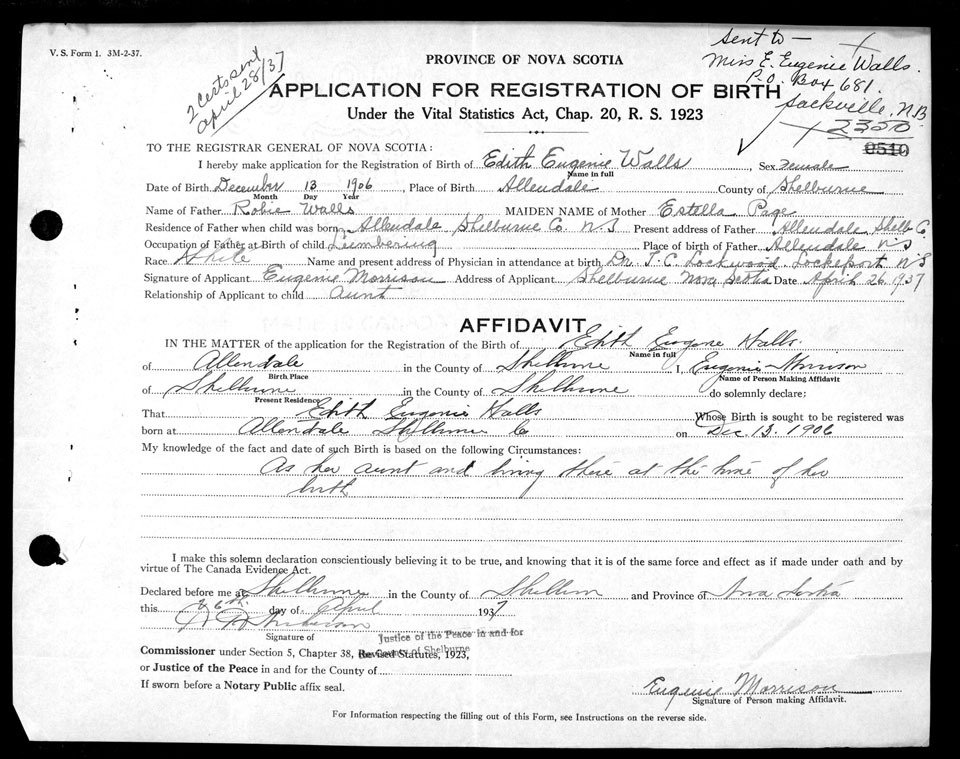 V. S. Form 1. 3M-2-37.
2 Certs sent
April 28/37
Sent to —
Miss E. Eugenie Walls.
P.O. Box 681.
Sackville, N.B
2350
0510
PROVINCE OF NOVA SCOTIA
APPLICATION FOR REGISTRATION OF BIRTH
Under the Vital Statistics Act, Chap. 20, R. S. 1923
TO THE REGISTRAR GENERAL OF NOVA SCOTIA:
I hereby make application for the Registration of Birth of Edith Eugenie Walls Sex Female
Name in full
Date of Birth December 13 1906, Place of Birth Allendale County of Shelburne
Month Day Year
Name of Father Robie Walls MAIDEN NAME of Mother Estella Page
Residence of Father when child was born Allendale, Shelburne Co. N.S Present address of Father Allendale Shelb C.
Occupation of Father at Birth of child Lumbering Place of birth of Father Allendale N S
Race White Name and present address of Physician in attendance at birth Dr. T. C. Lockwood. Lockeport N S
Signature of Applicant Eugenie Morrison Address of Applicant Shelburne Nova Scotia Date April 26, 1937
Relationship of Applicant to child Aunt
AFFIDAVIT
IN THE MATTER of the application for the Registration of the Birth of Edith Eugene Walls.
Name in full
of Allendale in the County of Shelburne I, Eugenie Morrison
Birth Place Name of Person Making Affidavit
of Shelburne in the County of Shelburne do solemnly declare:
Present Residence
That Edith Eugenie Walls Whose Birth is sought to be registered was
born at Allendale Shelburne Co on Dec. 13. 1906
My knowledge of the fact and date of such Birth is based on the following Circumstances:
As her aunt and living there at the time of her
birth
I make this solemn declaration conscientiously believing it to be true, and knowing that it is of the same force and effect as if made under oath and by
virtue of The Canada Evidence Act.
Declared before me at Shelburne in the County of Shelburne and Province of Nova Scotia
this 26th day of April 1937
Signature of Justice of the Peace in and for
Commissioner under Section 5, Chapter 38, Revised Statutes, 1923,
the County of Shelburne
or Justice of the Peace in and for the County of
If sworn before a Notary Public affix seal.
Eugenie Morrison
Signature of Person making Affidavit.
For Information respecting the filling out of this Form, see Instructions on the reverse side.